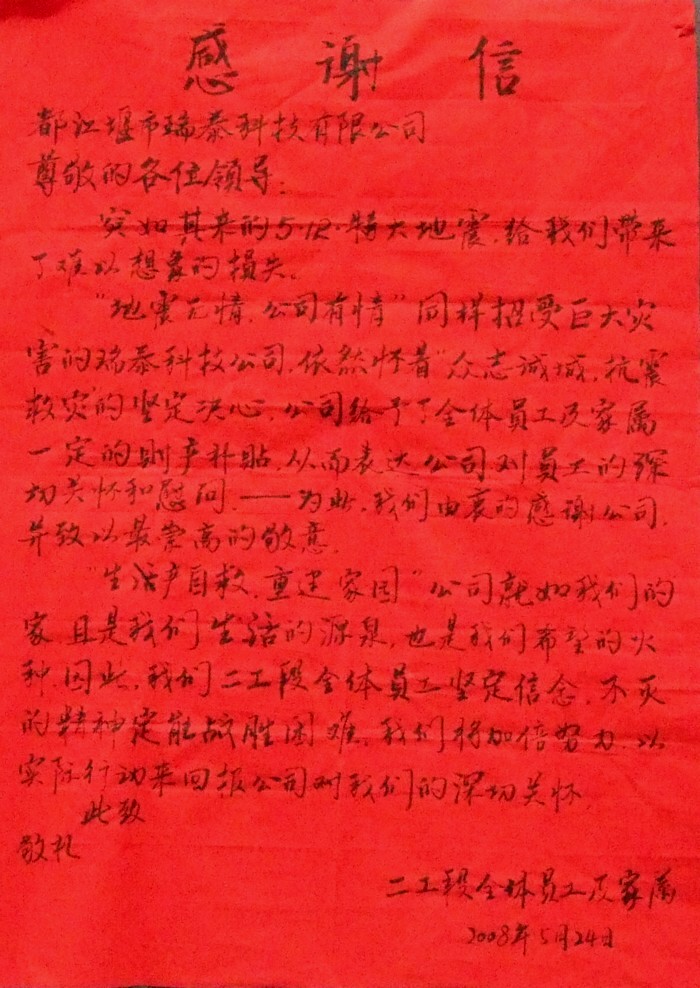 感谢信
都江堰市瑞泰科技有限公司
尊敬的各位领导：
突如其来的5·12·特大地震，给我们带来
了难以想象的损失。
“地震无情，公司有情”同样招受巨大灾
害的瑞泰科技公司，依然怀着“众志诚城，抗震
救灾”的坚定决心，公司给予了全体员工及家属
一定的财产补贴，从而表达公司对员工的深
切关怀和慰问，——为此，我们由衷的感谢公司，
并致以最崇高的敬意。
“生活产自救，重建家园”公司就如我们的
家且是我们生活的源泉，也是我们希望的火
种，因此，我们二工段全体员工坚定信念，不灭
的精神定能战胜困难，我们将加倍努力，以
实际行动来回报公司对我们的深切关怀。
此致
敬礼
二工段全体员工及家属
2008年5月24日